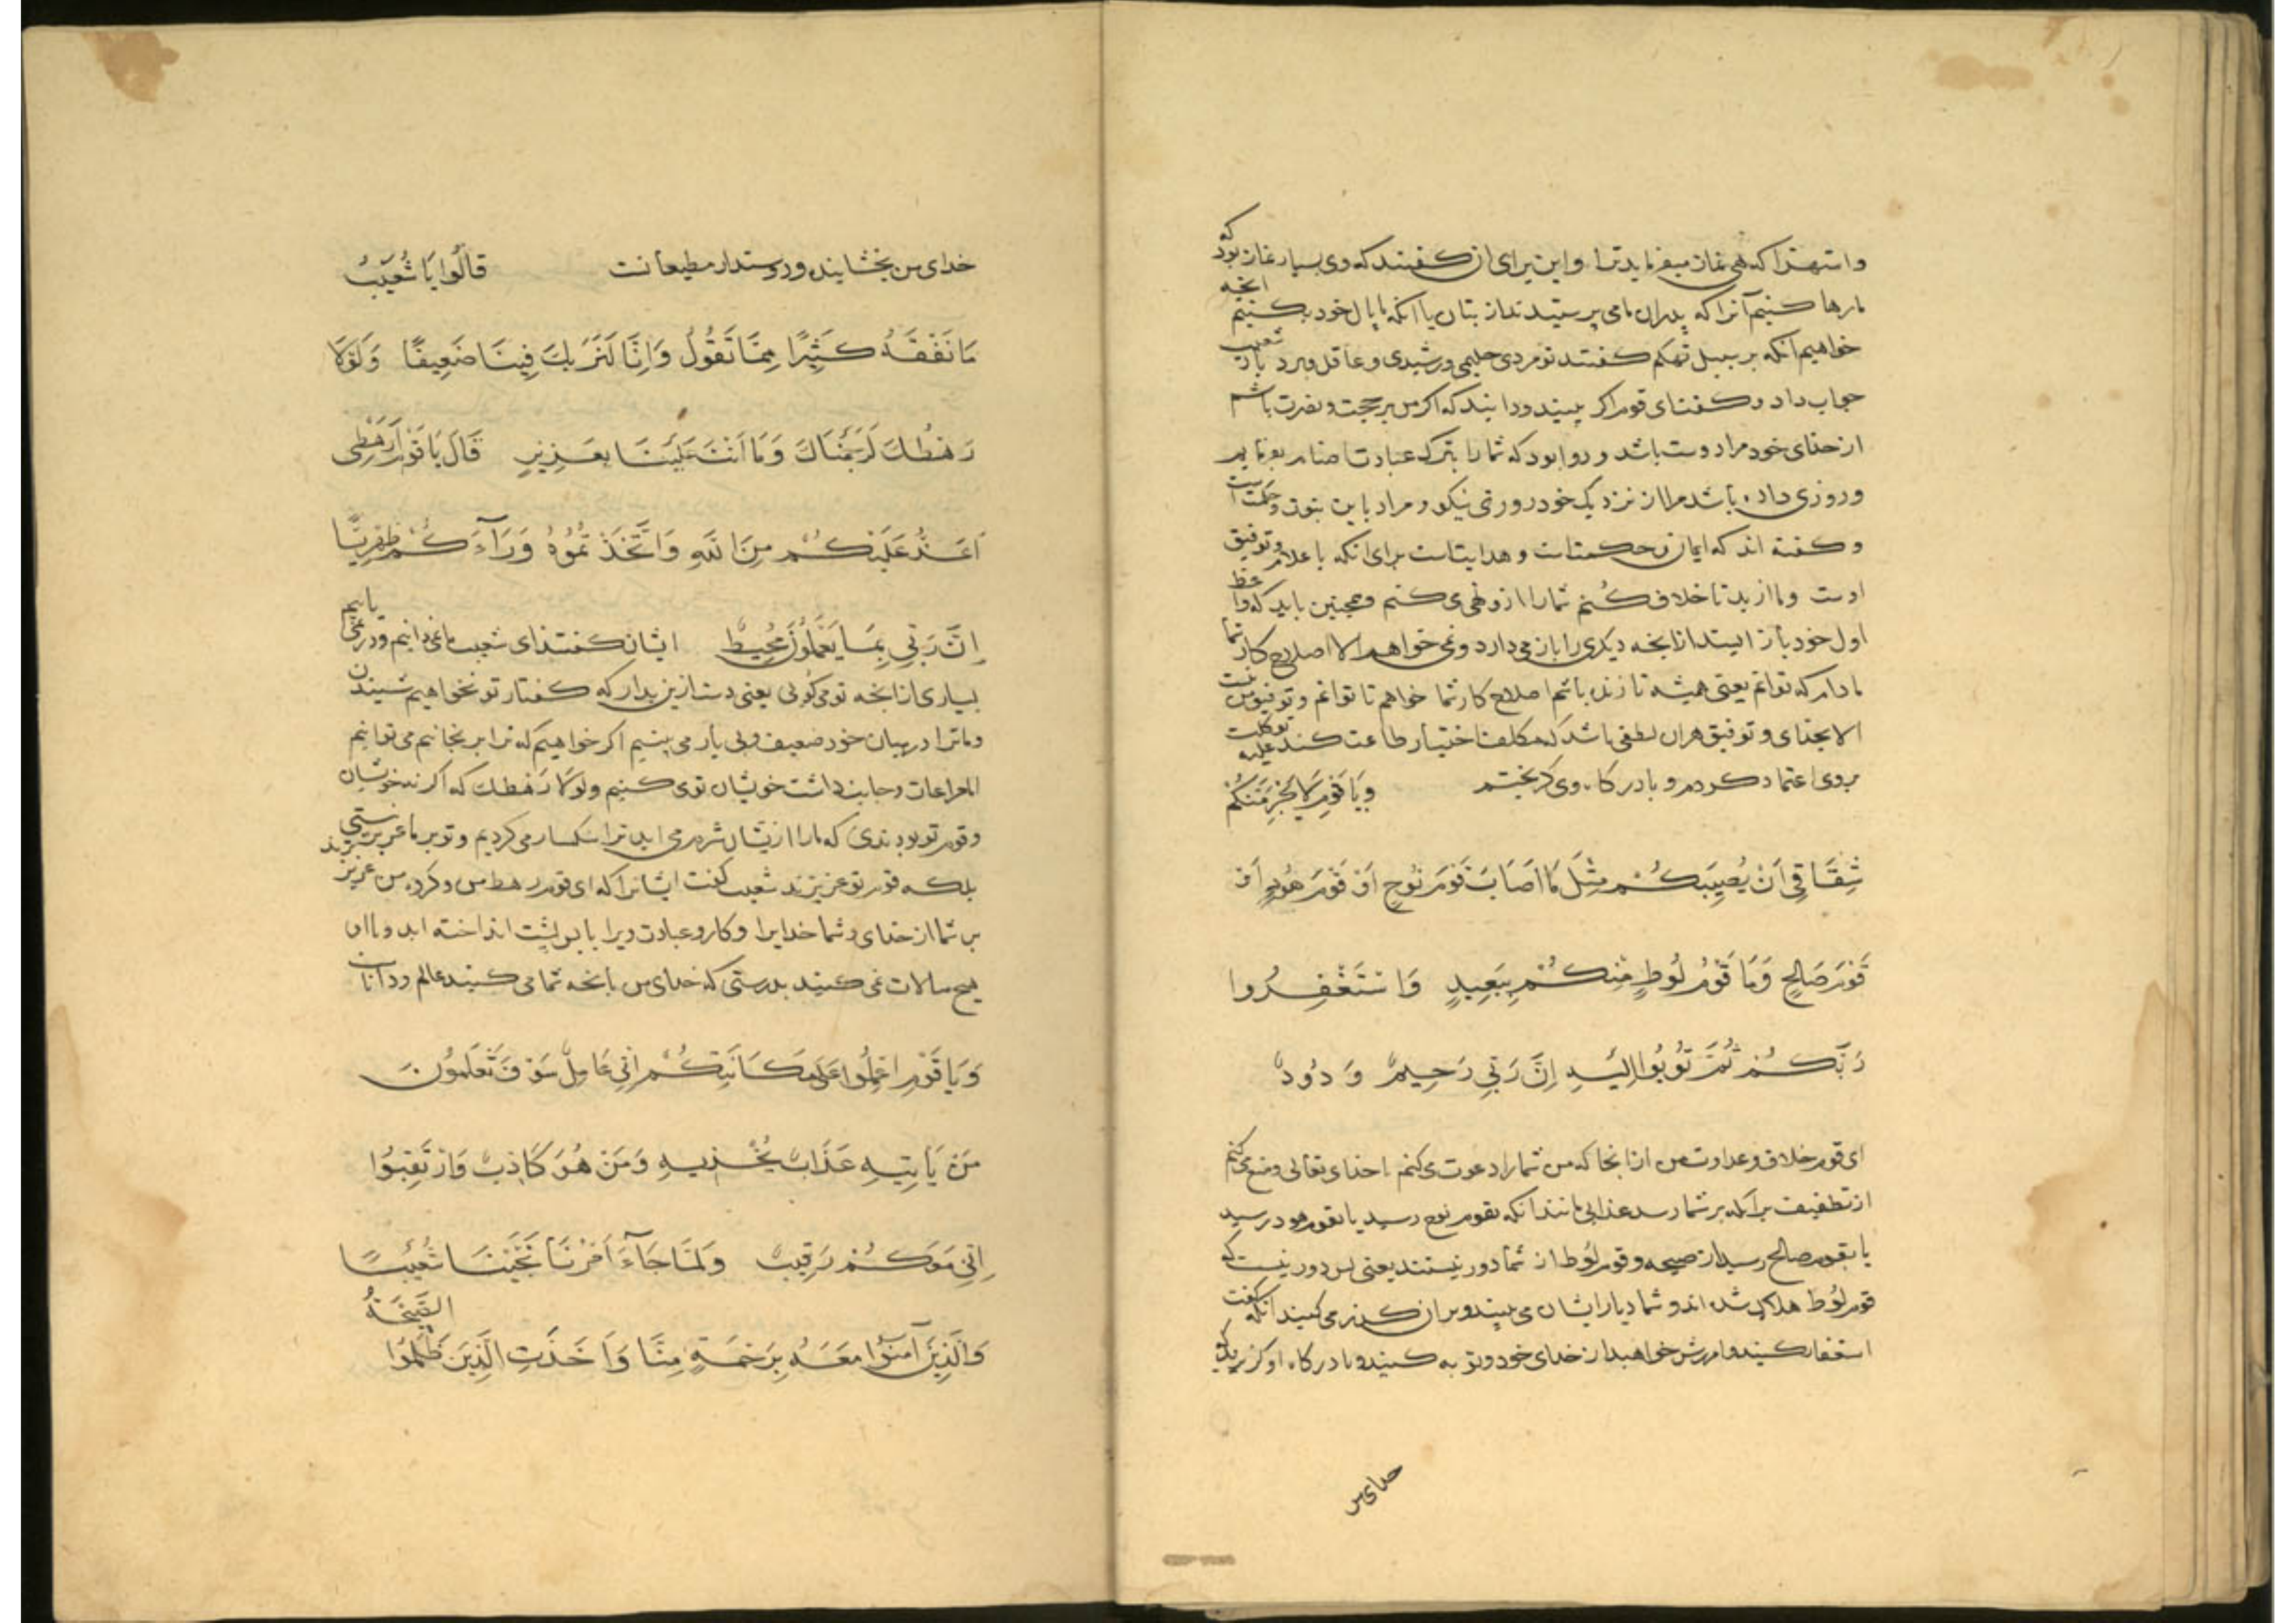 واستهزا که هی نماز میفرماید ترا و این برای آن گفتند که وی بسیار نماز بود که
ما رها کنیم آنرا که پدران ما می پرستیدند از بتان یا آنکه با مال خود بکنیم آنچه
خواهیم آنکه بر سبیل تهکم گفتند تو مردی حلیمی و رشیدی و عاقل شعیب
جواب داد و گفت ای قوم اگر ببینید و دانید که اگر من بر حجت و نصرت باشم
از خدای خود مرا دوست باشد و روا بود که شما را بترک عبادت اصنام بفرمایم
و روزی داده باشد مرا از نزدیک خود روزی نیکو و مراد باین نبوت و حکمت است
و گفته اند که ایمان و حکمتست و هدایتست برای آنکه باعلام و توفیق
اوست و ما ارید تا خلاف کنم شما را از و نهی می کنم و همچنین باید که واعظ
اول خود باز ایستد از آنچه دیگری را باز می دارد و نمی خواهم الا اصلاح کار شما
مادام که توانم یعنی همیشه تا زنده باشم اصلاح کار شما خواهم تا توانم و توفیق من نیست
الا بخدای و توفیق هر آن لطفی باشد که مکلف اختیار طاعت کند علیه توکلت
بروی اعتماد کردم و با درگاه وی گریختم وَيَا قَوْمِ لَا يَجْرِمَنَّكُمْ
شِقَاقِي أَنْ يُصِيبَكُمْ مِثْلَ مَا أَصَابَ قَوْمَ نُوحٍ أَوْ قَوْمَ هُودٍ أَوْ
قَوْمَ صَالِحٍ وَمَا قَوْمُ لُوطٍ مِنْكُمْ بِبَعِيدٍ وَاسْتَغْفِرُوا
رَبَّكُمْ ثُمَّ تُوبُوا إِلَيْهِ إِنَّ رَبِّي رَحِيمٌ وَدُودٌ
ای قوم خلاف و عداوت من از آنجا که من شما را دعوت می کنم با خدای تعالی و منع می کنم
از تطفیف بر آنکه بر شما رسد عذابی مانند آنکه بقوم نوح رسید یا بقوم هود رسید
یا بقوم صالح رسید از صیحه و قوم لوط از شما دور نیستند یعنی بس دور نیست که
قوم لوط هلاک شده اند و شما دیار ایشان می بینید و بر آن گذر می کنید آنگه گفت
استغفار کنید و آمرزش خواهید از خدای خود و توبه کنید و با درگاه او گریزید که
خدای من
خدای من بخشاینده و دوستدار مطیعانست قَالُوا يَا شُعَيْبُ
مَا نَفْقَهُ كَثِيرًا مِمَّا تَقُولُ وَإِنَّا لَنَرَىكَ فِينَا ضَعِيفًا وَلَوْلَا
رَهْطُكَ لَرَجَمْنَاكَ وَمَا أَنْتَ عَلَيْنَا بِعَزِيزٍ قَالَ يَا قَوْمِ أَرَهْطِي
أَعَزُّ عَلَيْكُمْ مِنَ اللَّهِ وَاتَّخَذْتُمُوهُ وَرَآءَكُمْ ظِهْرِيًّا
إِنَّ رَبِّي بِمَا يَعْمَلُونَ مُحِيطٌ ایشان گفتند ای شعیب ما نمی دانیم و در نمی یابیم
بسیاری از آنچه تو می گوئی یعنی دست ازین بدار که گفتار تو نخواهیم شنیدن
و ما ترا در میان خود ضعیف و بی یار می بینیم اگر خواهیم که ترا برنجانیم می توانیم
اما مراعات و جانب داشت خویشان تو می کنیم ولولا رهطك که اگر نه خویشان
و قوم تو بودندی که ما را ازیشان شرم می آید ترا سنگسار می کردیم و تو بر ما عزیز نیستی
بلکه قوم تو عزیزند شعیب گفت ایشانرا که ای قوم رهط من و گروه من عزیزترند
بر شما از خدای و شما خدایرا و کار و عبادت ویرا با پس پشت انداخته اید و باان
هیچ مبالات نمی کنید بدرستی که خدای من بآنچه شما می کنید عالم و داناست
وَيَا قَوْمِ اعْمَلُوا عَلَى مَكَانَتِكُمْ إِنِّي عَامِلٌ سَوْفَ تَعْلَمُونَ
مَنْ يَأْتِيهِ عَذَابٌ يُخْزِيهِ وَمَنْ هُوَ كَاذِبٌ وَارْتَقِبُوا
إِنِّي مَعَكُمْ رَقِيبٌ وَلَمَّا جَآءَ أَمْرُنَا نَجَّيْنَا شُعَيْبًا
وَالَّذِينَ آمَنُوا مَعَهُ بِرَحْمَةٍ مِنَّا وَأَخَذَتِ الَّذِينَ ظَلَمُوا الصَّيْحَةُ